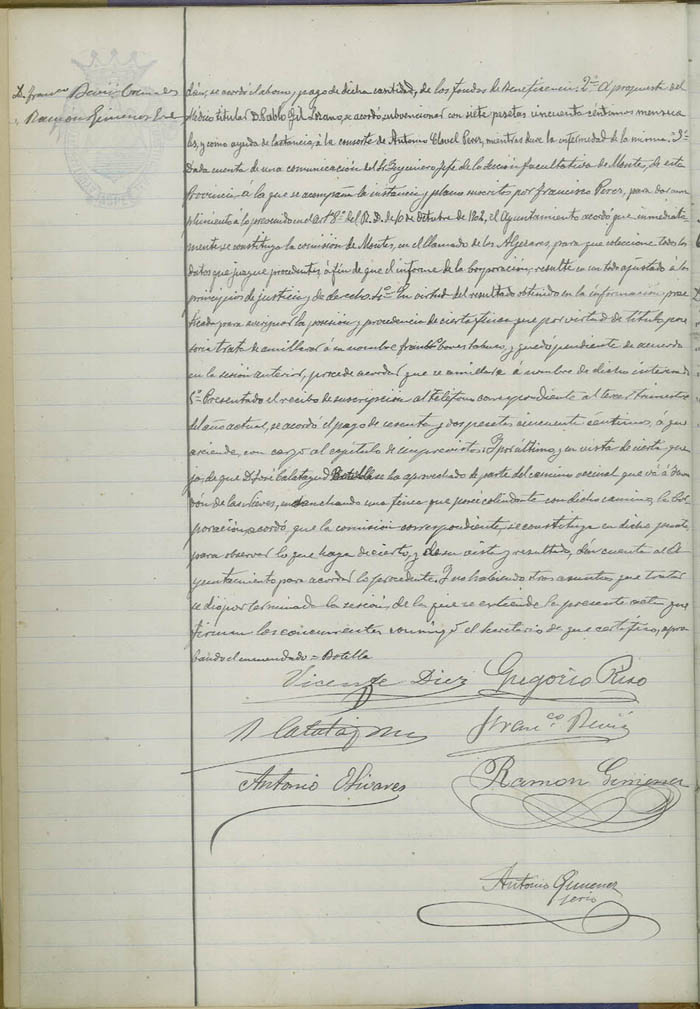 D. Franco
Ramon Gimenez
den, se acordó el abono y pago de dicha cantidad, de los fondos de Beneficencia. 2º A propuesta del
Médico titular D. Pablo Gil se acordó subvencionar con siete pesetas cincuenta céntimos mensua
les, y como ayuda de lactancia, a la consorte de Antonio Clavel Perez, mientras dure la enfermedad de la misma. 3º
Dada cuenta de una comunicación del Sr Ingeniero, jefe de la sección facultativa de Montes, de esta
Provincia, a la que se acompaña la instancia y plano suscritos por Francisco Perez, para dar cum
plimiento a lo prevenido en el artº 8º del R. D. de de Octubre de el Ayuntamiento acordó que inmediata
mente se constituya la comisión de Montes, en el llamado de los Algezares, para que coleccione todos los
datos que juzgue procedentes, á fin de que el informe de la Corporación, resulte en un todo ajustado á los
principios de justicia y de derecho. 4º En virtud del resultado obtenido en la información prac
ticada para averiguar la posesión y procedencia de cierta finca que por virtud de título pose
sorio trata de amillarar á su nombre y quedó pendiente de acuerdo
en la sesión anterior, procede acordar que se amillare á nombre de dicho interesado
5º Presentado el recibo de suscripción al teléfono correspondiente al tercer trimestre
del año actual, se acordó el pago de sesenta y dos pesetas cincuenta céntimos, á que
asciende, con cargo al capítulo de imprevistos. Y por último, y en vista de cierta que
ja de que D. José Calatayud Botella se ha aprovechado de parte del camino vecinal que vá á
de las Nieves, ensanchando una finca que posee colindante con dicho camino, la Cor
poración acordó, que la comisión correspondiente, se constituya en dicho punto
para observar lo que haya de cierto, y de su vista y resultado, den cuenta al A
yuntamiento para acordar lo procedente. Y no habiendo mas asuntos que tratar
se dió por terminada la sesión, de la que se extiende la presente acta que
firman los concurrentes conmigo el secretario de que certifico, apro
bando el enmendado = Botella
Vicente Diez Gregorio Rizo
Calatayud Franco
Antonio Olivares Ramon Gimenez
Antonio Gimenez
srio